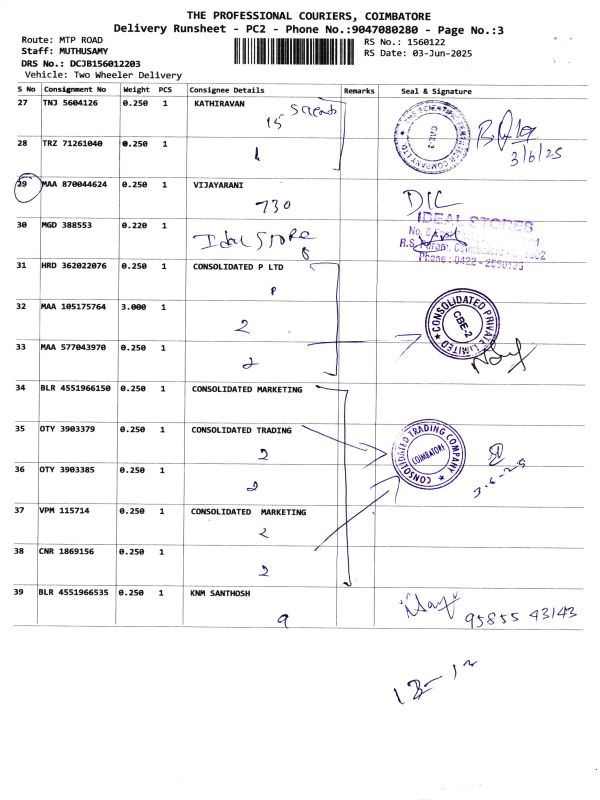 THE PROFESSIONAL COURIERS, COIMBATORE
Delivery Runsheet - PC2 - Phone No.:9047080280 - Page No.:3
Route: MTP ROAD
RS No.: 1560122
Staff: MUTHUSAMY
RS Date: 03-Jun-2025
DRS No.: DCJB156012203
Vehicle: Two Wheeler Delivery
S No Consignment No Weight PCS Consignee Details Remarks Seal & Signature
27 TNJ 5604126 0.250 1 KATHIRAVAN
15
CBE-2
3/6/25
28 TRZ 71261040 0.250 1
29 MAA 870044624 0.250 1 VIJAYARANI
730
30 MGD 388553 0.220 1
Ideal STORE
IDEAL STORES
Phone : 0422 -
31 HRD 362022076 0.250 1 CONSOLIDATED P LTD
32 MAA 105175764 3.000 1
2
CONSOLIDATED PRIVATE LIMITED
CBE-2
33 MAA 577043970 0.250 1
2
34 BLR 4551966150 0.250 1 CONSOLIDATED MARKETING
35 OTY 3903379 0.250 1 CONSOLIDATED TRADING
2
CONSOLIDATED TRADING COMPANY
COIMBATORE
36 OTY 3903385 0.250 1
2
3-6-25
37 VPM 115714 0.250 1 CONSOLIDATED MARKETING
2
38 CNR 1869156 0.250 1
2
39 BLR 4551966535 0.250 1 KNM SANTHOSH
9
95855 43143